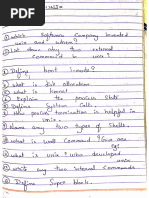 ① which Software Company invented
unix and when?
② List down any two internal
Command in unix.
③ Define boot
④ what is disk allocation
⑤ what is
⑥ Explain the process State
⑦ Define System Call.
⑧ How process termination is helpful in
Unix.
⑨ Name any two types of Shells.
⑩ what is wall Command? Give
eg.
⑪ what is unix? who developed
unix
⑫ which any two internal Commands
⑬ Define Super block.